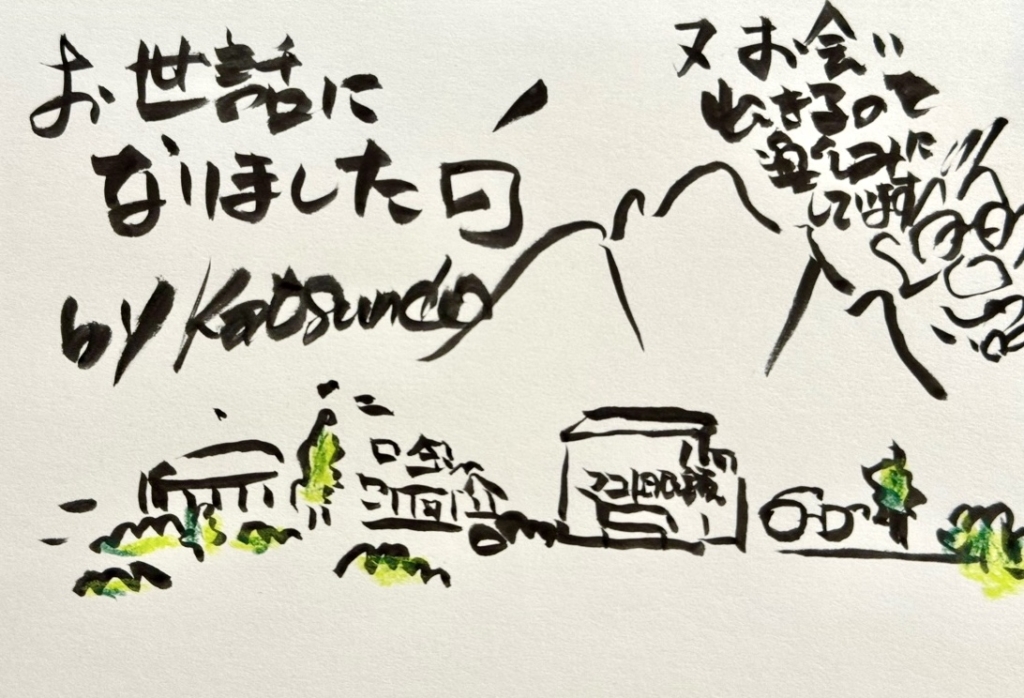 お世話に
なりました
by Katsundo
又お会い
出来るので
楽しみに
しています